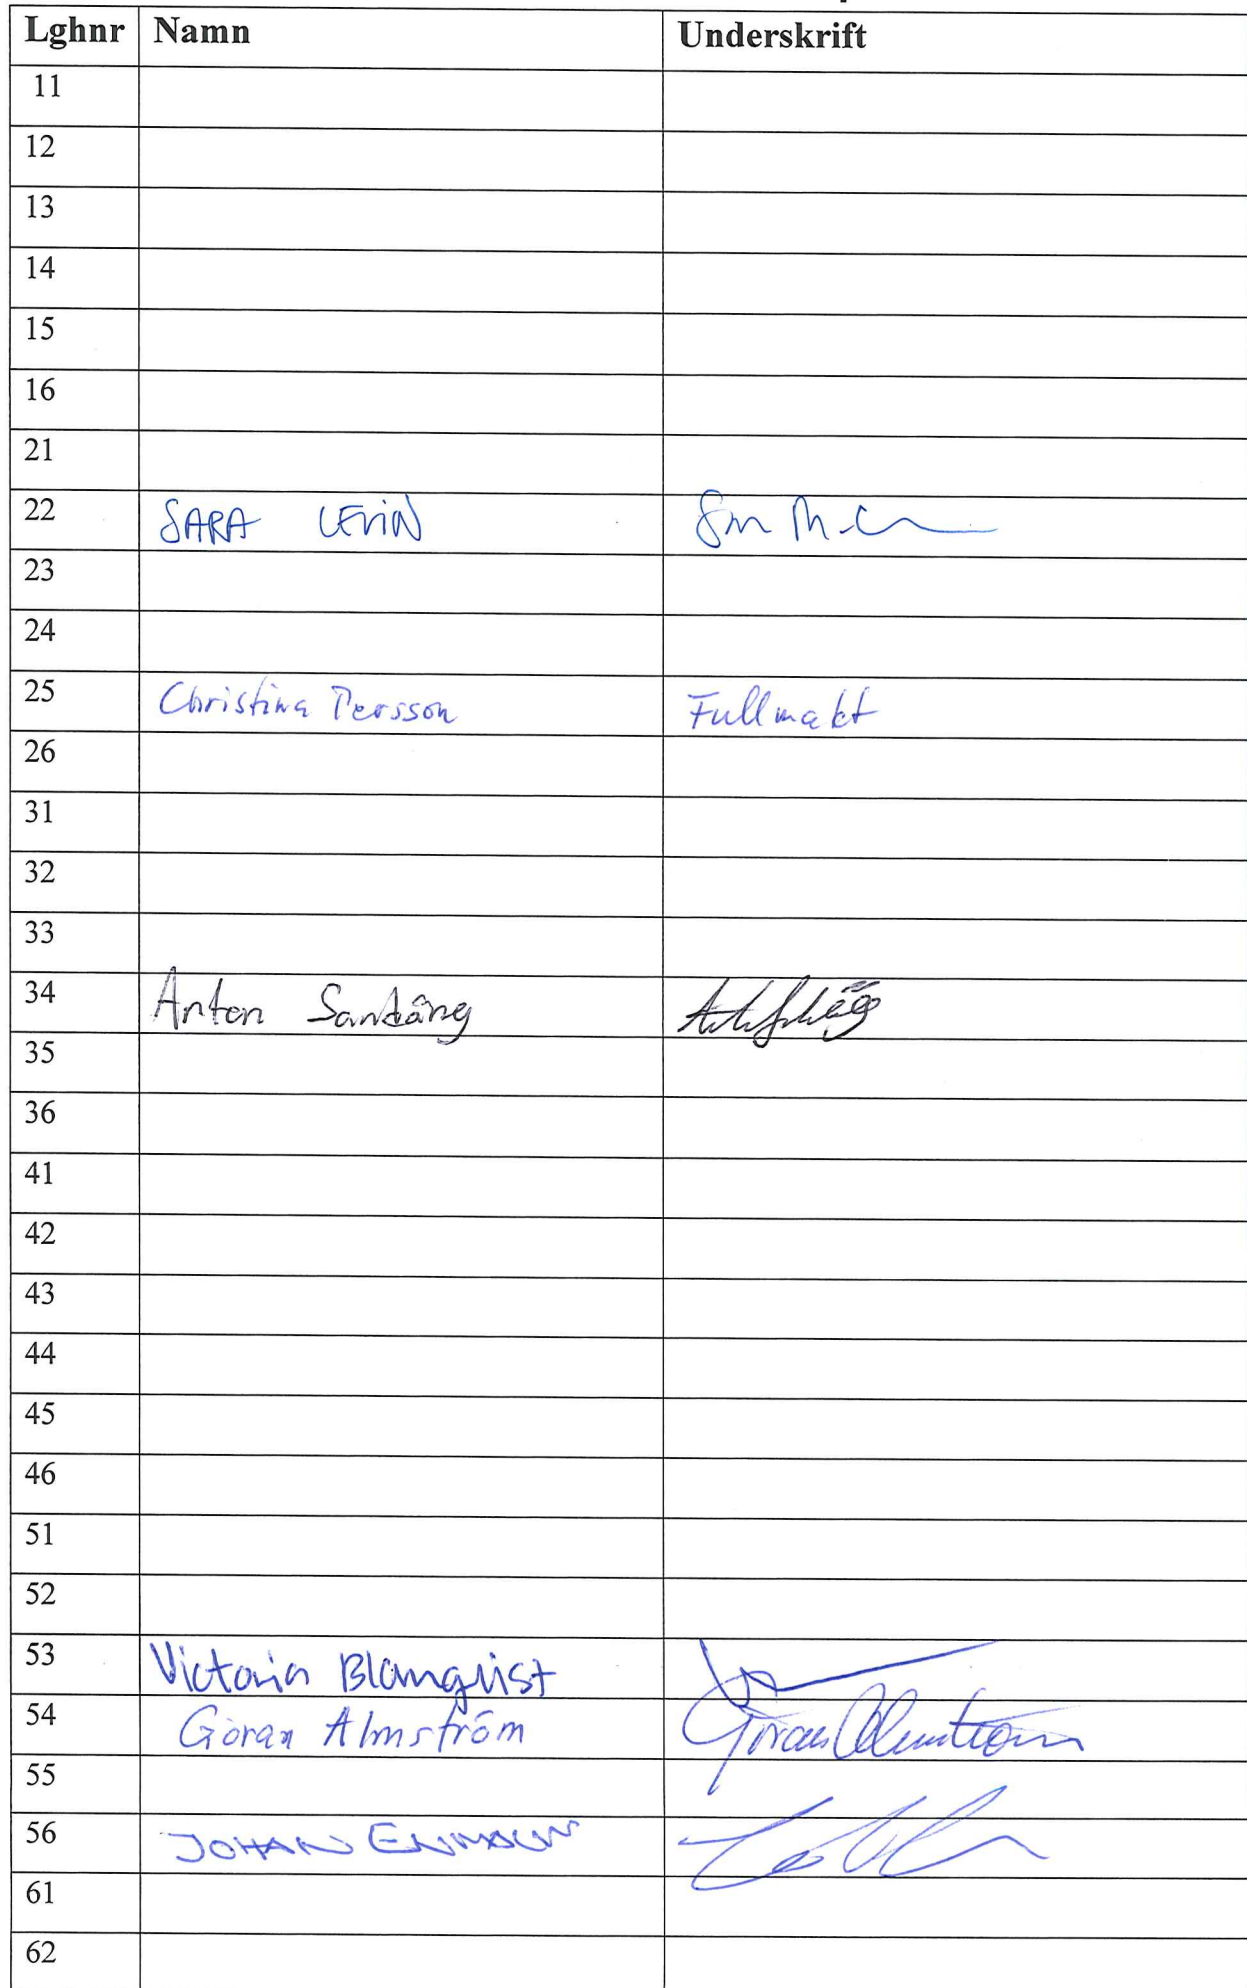 Lghnr Namn Underskrift
11
12
13
14
15
16
21
22 SARA LEVIN
23
24
25 Christina Persson Fullmakt
26
31
32
33
34 Anton Sandäng
35
36
41
42
43
44
45
46
51
52
53 Victoria Blomqvist
54 Göran Almström Göran Almström
55
56 JOHAN
61
62